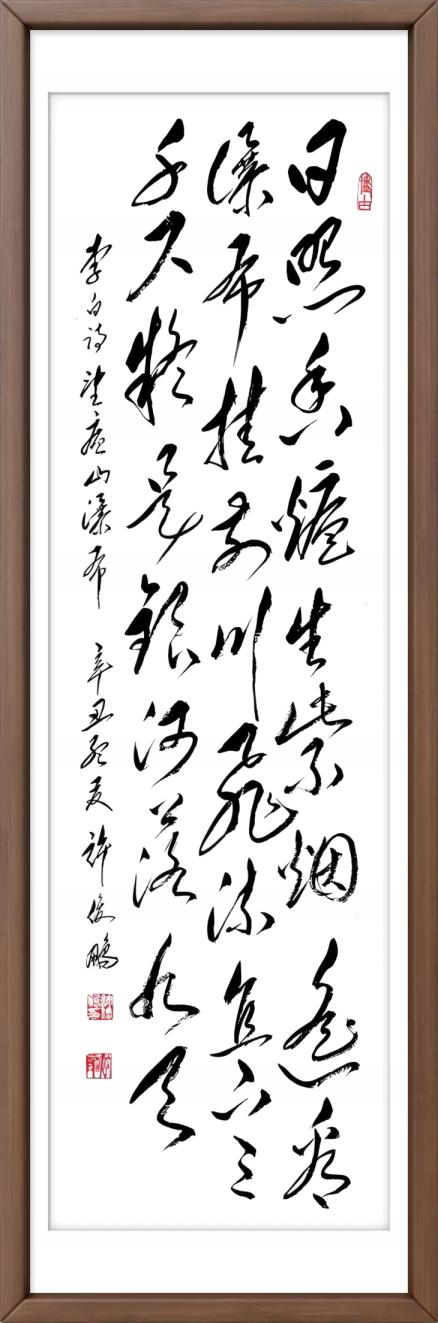 日照香爐生紫烟遥看
瀑布挂前川飛流直下三
千尺疑是銀河落九天
李白詩望廬山瀑布 辛丑夏 許俊鵬